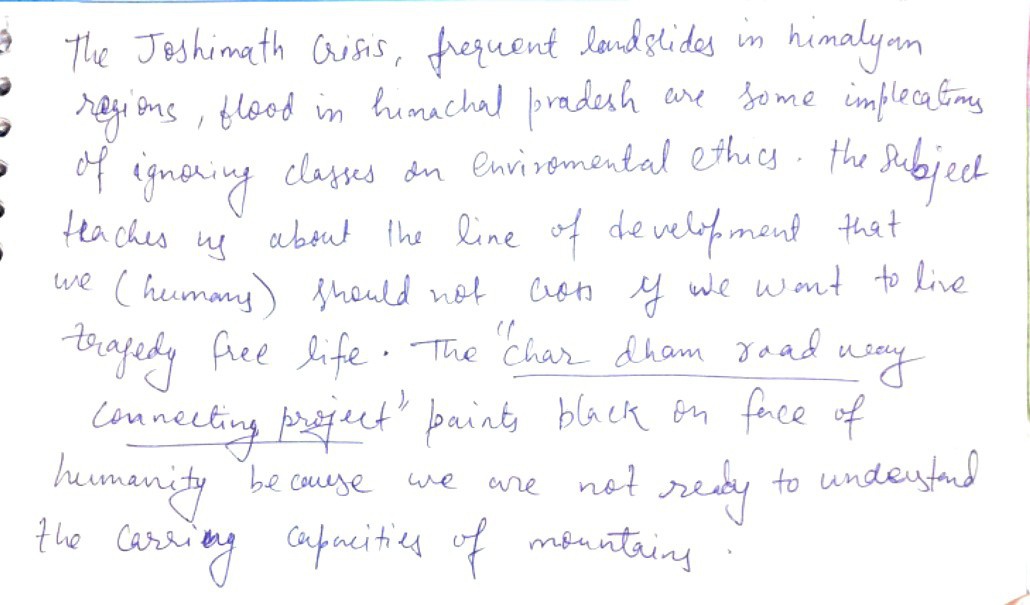 The Joshimath Crisis, frequent landslides in himalyan
regions, flood in himachal pradesh are some implecations
of ignoring classes on enviromental ethics. the subject
teaches us about the line of development that
we (humans) should not cross if we want to live
tragedy free life. The "char dham road way
connecting project" paints black on face of
humanity because we are not ready to understand
the carring capacities of mountains.